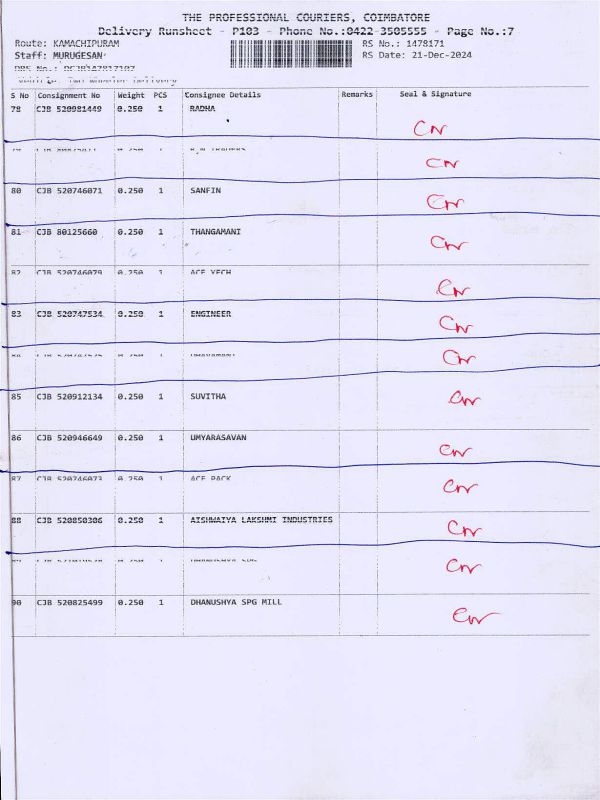 THE PROFESSIONAL COURIERS, COIMBATORE
Delivery Runsheet - P103 - Phone No.:0422-3505555 - Page No.:7
Route: KAMACHIPURAM RS No.: 1478171
Staff: MURUGESAN RS Date: 21-Dec-2024
DRS No.:
Two Wheeler Delivery
S No Consignment No Weight PCS Consignee Details Remarks Seal & Signature
78 CJB 520981449 0.250 1 RADHA
TRADERS
80 CJB 520746071 0.250 1 SANFIN
81 CJB 80125660 0.250 1 THANGAMANI
82 CJB 520746079 0.250 1 ACE YECH
83 CJB 520747534 0.250 1 ENGINEER
85 CJB 520912134 0.250 1 SUVITHA
86 CJB 520946649 0.250 1 UMYARASAVAN
87 CJB 520746073 0.250 1 ACE PACK
88 CJB 520850306 0.250 1 AISHWAIYA LAKSHMI INDUSTRIES
90 CJB 520825499 0.250 1 DHANUSHYA SPG MILL